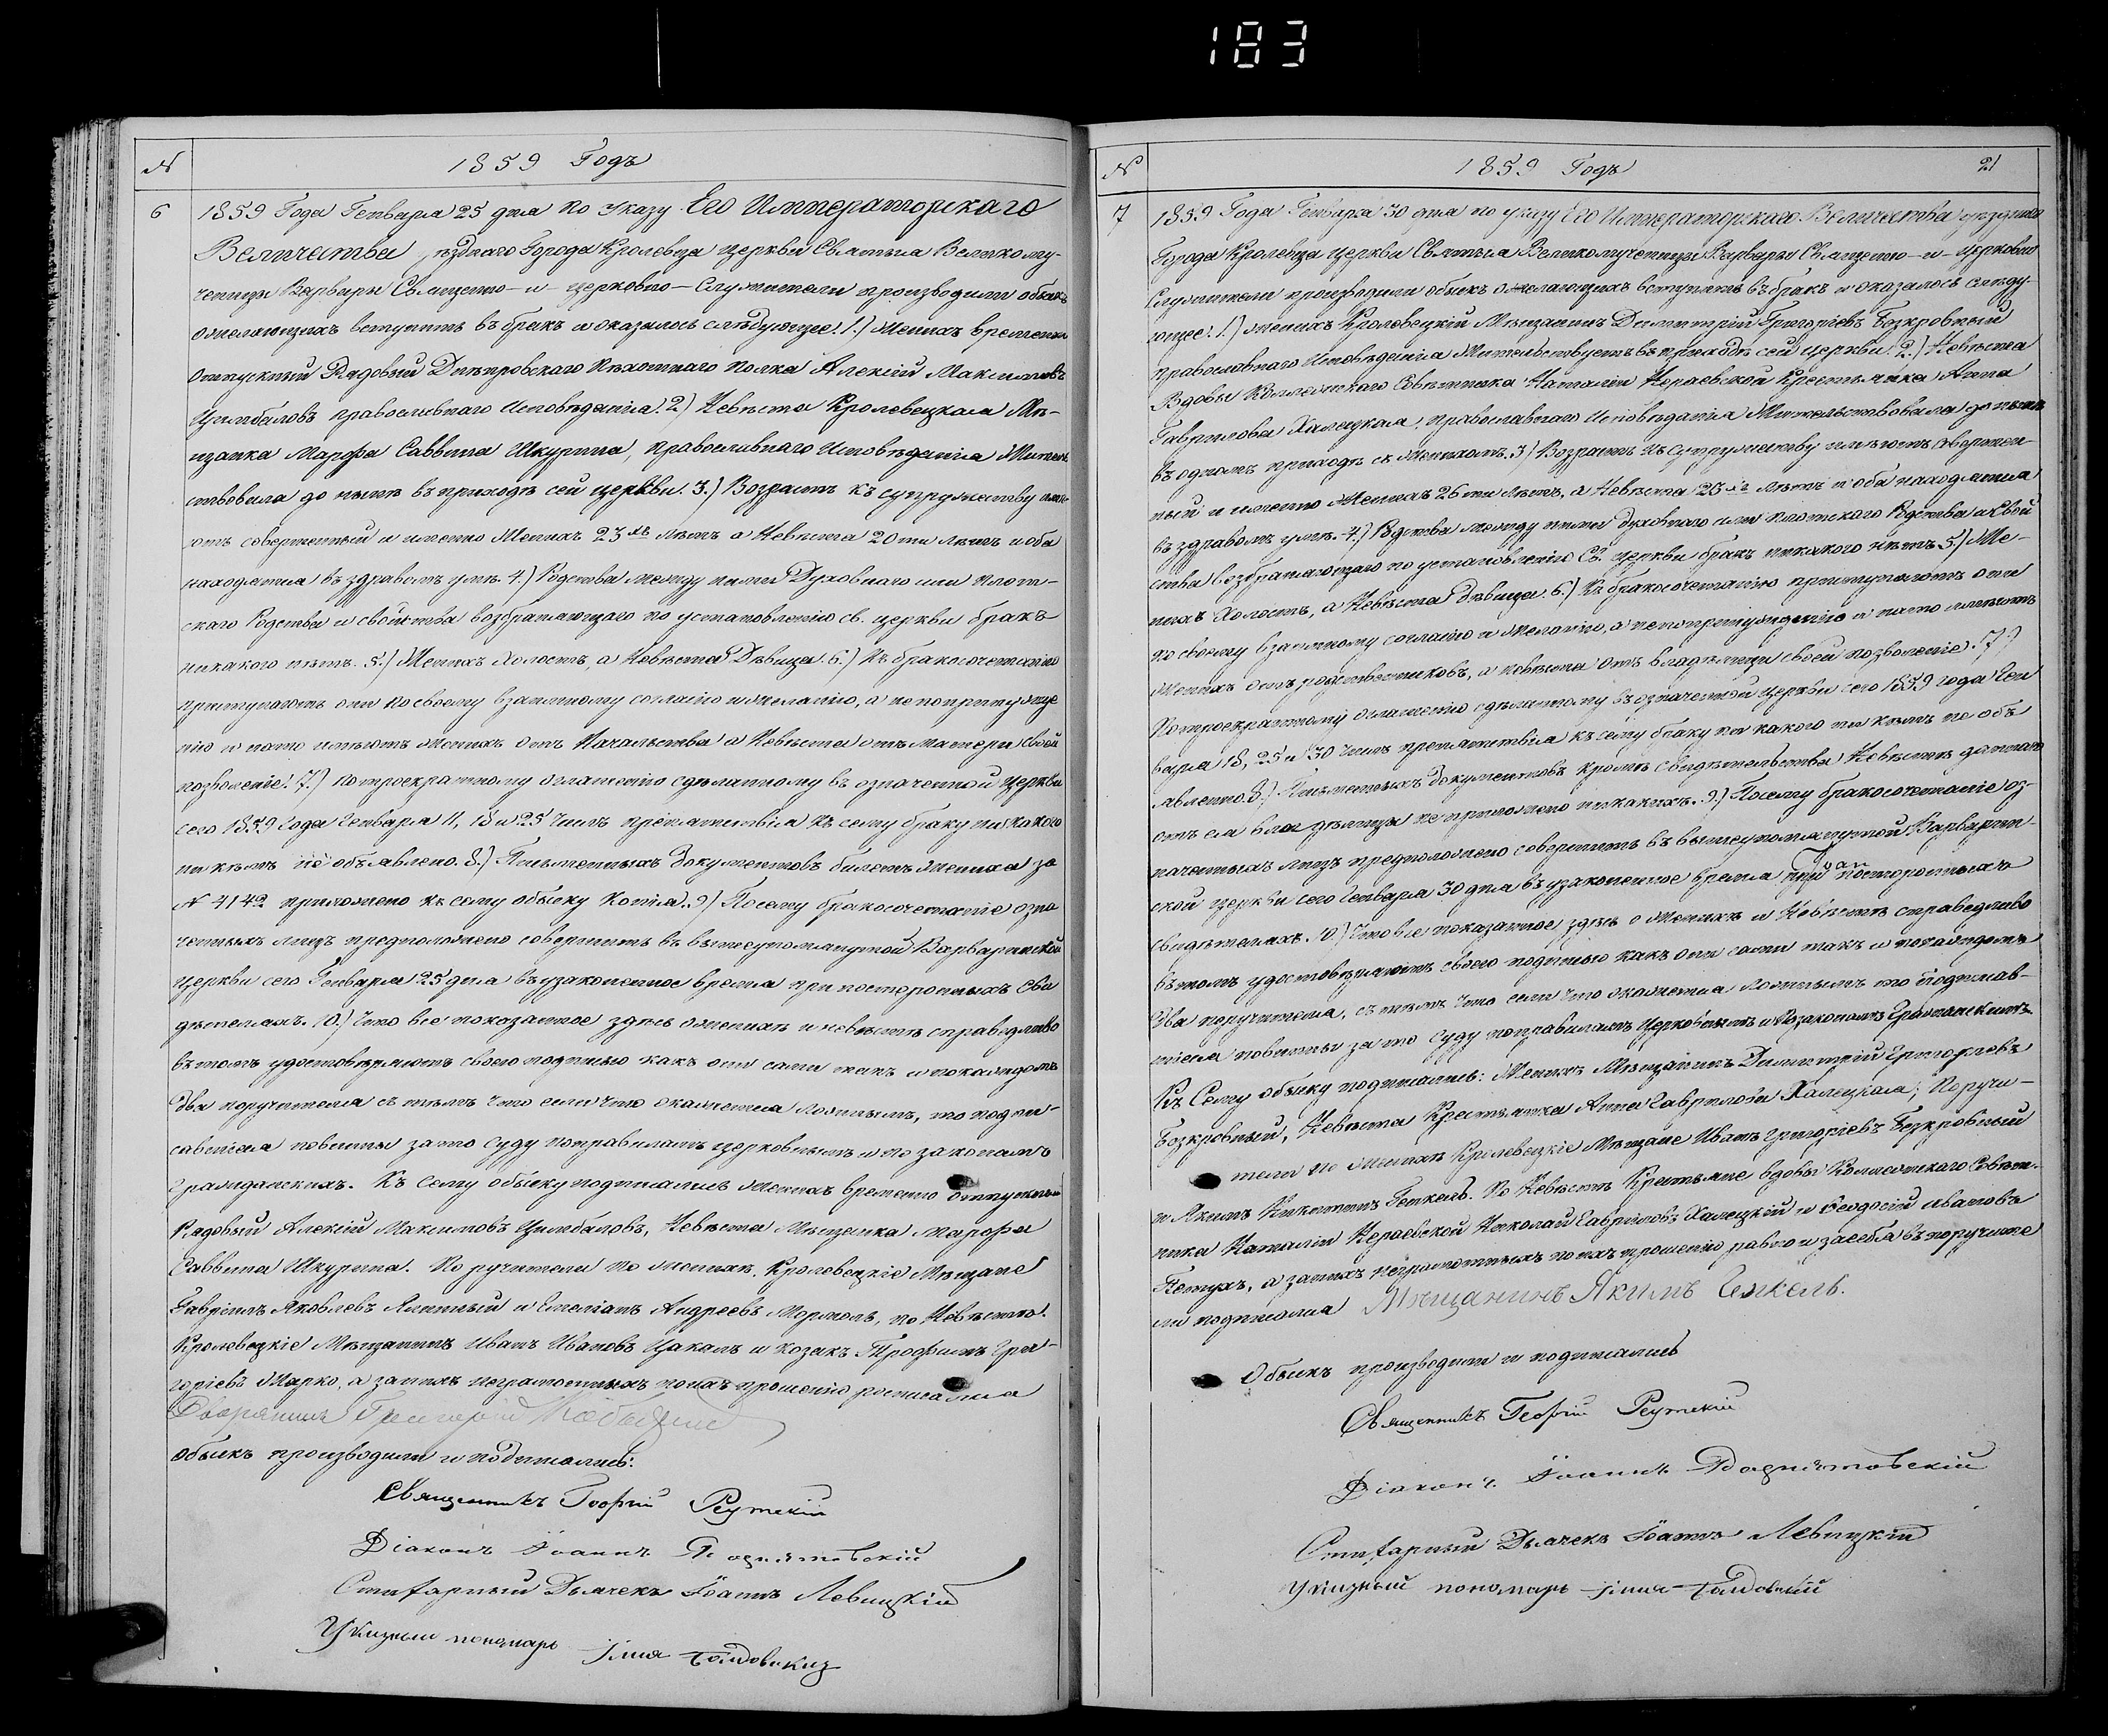 183
N 1859 Годъ
6 1859 Года Генваря 25 дня по Указу Его Императорскаго
Величества, уѣзднаго Города Кролевца церкви Святыя Великому-
ченицы Варвары Священно-и-церковно-Служители производили обыскъ
о желающихъ вступить въ бракъ и оказалось слѣдующее: 1.) Женихъ временно
отпускный Рядовый Днѣпровскаго Пѣхотнаго полка Алексій Максимовъ
Цимбаловъ православнаго Исповѣданія. 2.) Невѣста Кролевецкая Мѣ-
щанка Марфа Саввина Шкурина, православнаго Исповѣданія Житель
ствовала до нынѣ въ приходѣ сей церкви. 3.) Возрастъ къ супружеству имѣ-
ютъ совершенный и именно Женихъ 23хъ лѣтъ а Невѣста 20ти лѣтъ и оба
находятся въ здравомъ умѣ. 4.) Родства между ними Духовнаго или плот-
скаго Родства и свойства возбраняющаго по установленію св. церкви бракъ
никакого нѣтъ. 5.) Женихъ Холостъ, а Невѣста Дѣвица. 6.) Къ бракосочетанію
приступаютъ они по своему взаимному согласію и желанію, а не по принужде
нію и на то имѣютъ женихъ отъ Начальства а Невѣста отъ матери своей
позволеніе. 7.) По троекратному оглашенію сдѣланному въ означенной церкви
сего 1859 Года Генваря 11, 18 и 25 чиселъ препятствія къ сему браку никакого
ни кѣмъ не объявлено. 8.) Письменныхъ документовъ билетъ жениха за
N 4142 приложено къ сему обыску копія. 9.) Посему бракосочетаніе озна
ченныхъ лицъ предположено совершить въ вышеупомянутой Варваринской
церкви сего Генваря 25 дня въ узаконенное время при постороннихъ Сви
дѣтеляхъ. 10.) Что все показанное здѣсь о женихѣ и невѣстѣ справедливо
въ томъ удостовѣряютъ своею подписью какъ они сами такъ и по каждомъ
два поручителя съ тѣмъ что если что окажется ложнымъ, то подпи-
савшіеся повинны за то суду по правиламъ церковнымъ и по законамъ
гражданскимъ. Къ сему обыску подписались женихъ временно отпускный
Рядовый Алексій Максимовъ Цимбаловъ, Невѣста Мѣщанка Марфа
Саввина Шкурина. Поручители по женихѣ. Кролевецкіе Мѣщане
Гавріилъ Яковлевъ и Емеліанъ Андреевъ по Невѣстѣ.
Кролевецкіе Мѣщанинъ Иванъ Ивановъ Цакалъ и козакъ Трофимъ Гри-
горіевъ Марко, а за нихъ неграмотныхъ по ихъ прошенію росписался
Дворянинъ Григорій
Обыскъ производили и подписались:
Священникъ Георгій Реутскій
Діаконъ Іоаннъ
Стихарный Дьячекъ Іоаннъ Левицкій
Указный пономарь
N 1859 Годъ 21
7 1859 Года Генваря 30 дня по указу Его Императорскаго Величества уѣзднаго
Города Кролевца церкви Святыя Великомученицы Варвары Священно-и-церковно
Служители производили обыскъ о желающихъ вступить въ бракъ и оказалось слѣду-
ющее: 1.) Женихъ Кролевецкій Мѣщанинъ Димитрій Григоріевъ Безкровный
православнаго Исповѣданія Жительствуетъ въ приходѣ сей церкви. 2.) Невѣста
Вдовы Коллежскаго Совѣтника Наталіи Нераевской Крестьянка Анна
Гаврилова Халецкая, православнаго Исповѣданія Жительствовала до нынѣ
въ одномъ приходѣ съ Женихомъ. 3.) Возрастъ къ супружеству имѣютъ совершен-
ный и именно Женихъ 26ти лѣтъ, а Невѣста 23хъ лѣтъ и оба находятся
въ здравомъ умѣ. 4.) Родства между ними духовнаго или плотскаго Родства и свой
ства возбраняющаго по установленію Св. церкви бракъ никакого нѣтъ. 5.) Же-
нихъ Холостъ, а Невѣста дѣвица. 6.) Къ бракосочетанію приступаютъ они
по своему взаимному согласію и желанію, а не по принужденію и на то имѣютъ
Женихъ отъ родственниковъ, а невѣста отъ владѣлицы своей позволеніе. 7.)
По троекратному оглашенію сдѣланному въ означенной церкви сего 1859 года Ген
варя 18, 25 и 30 чиселъ препятствія къ сему браку никакого ни кѣмъ не объ
явлено. 8.) Письменныхъ документовъ кромѣ свидѣтельства Невѣстѣ даннаго
отъ ея владѣлицы не приложено никакихъ. 9.) Посему бракосочетаніе оз-
наченныхъ лицъ предположено совершить въ вышеупомянутой Варварин-
ской церкви сего Генваря 30 дня въ узаконенное время при постороннихъ
свидѣтеляхъ. 10.) Что все показанное здѣсь о женихѣ и Невѣстѣ справедливо
въ томъ удостовѣряютъ своею подписью какъ они сами такъ и по каждомъ
два поручителя, съ тѣмъ что если что окажется ложнымъ то подписав-
шіеся повинны за то суду по правиламъ церковнымъ и по законамъ Гражданскимъ.
Къ Сему обыску подписались: Женихъ Мѣщанинъ Димитрій Григорьевъ
Безкровный, Невѣста Крестьянка Анна Гаврилова Халецкая; Поручи-
тели по Женихѣ Кролевецкіе Мѣщане Иванъ Григоріевъ Безкровный
и Якимъ Никитинъ Генкель. По Невѣстѣ Крестьяне вдовы Коллежскаго Совѣт-
ника Наталіи Нераевской Николай Гавриловъ Халецкій и Феодосій Ивановъ
Пѣтухъ, а за нихъ неграмотныхъ по ихъ прошенію равно и за себя въ поручите
ли подписался Мѣщанинъ Якимъ Генкель.
Обыскъ производили и подписались
Священникъ Георгій Реутскій
Діаконъ Іоаннъ
Стихарный Дьячекъ Іоаннъ Левицкій
Указный пономарь